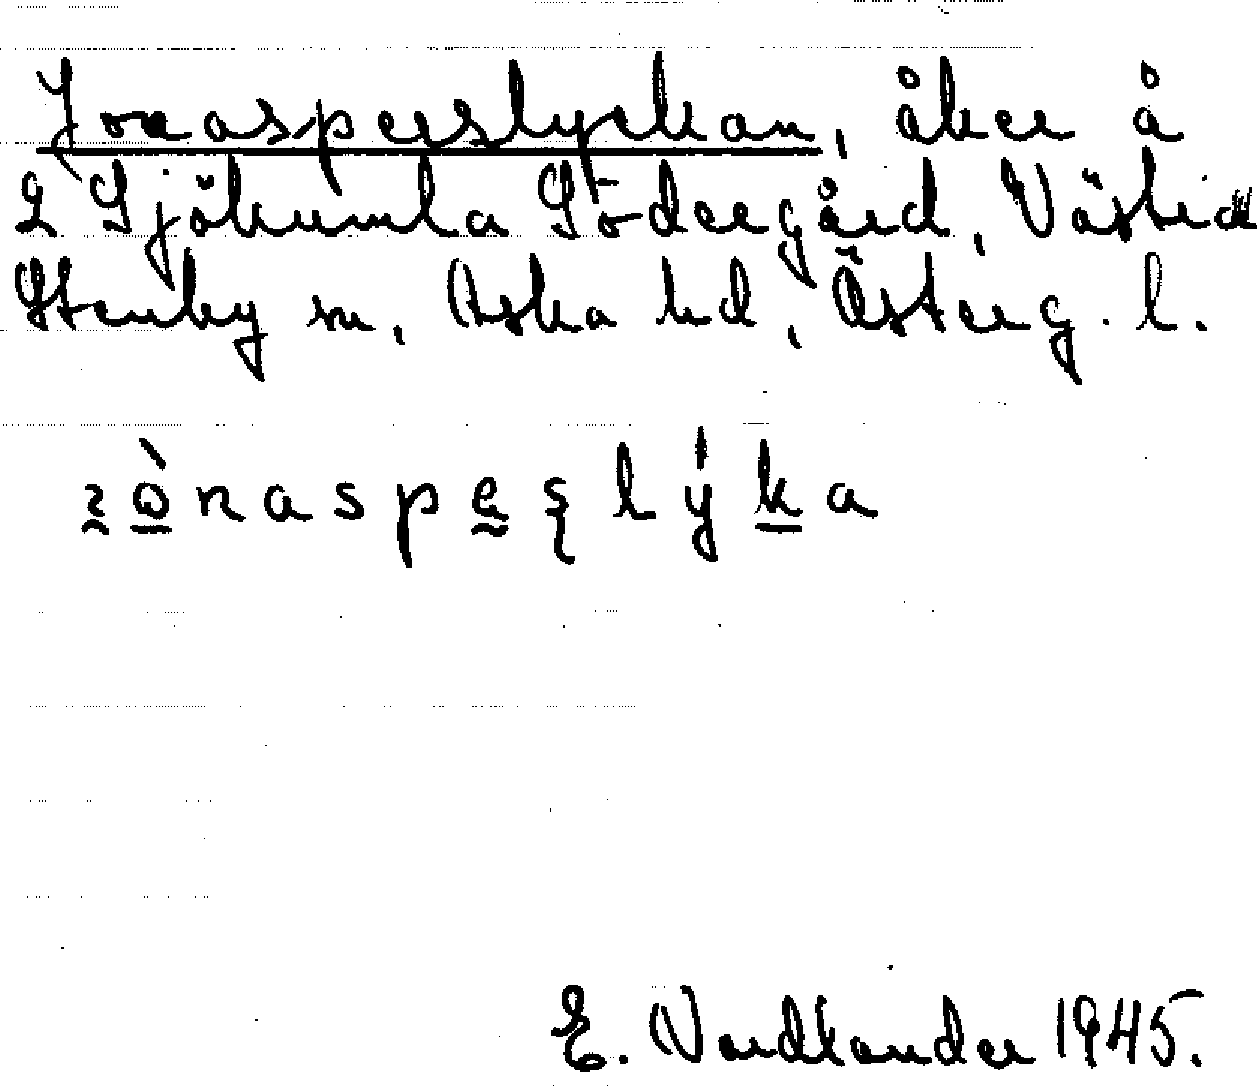 Jonasperslyckan, åker å
2 Sjökumla Södergård, Västra
Stenby sn, Aska hd, Österg. l.
E. Nordlander 1945.